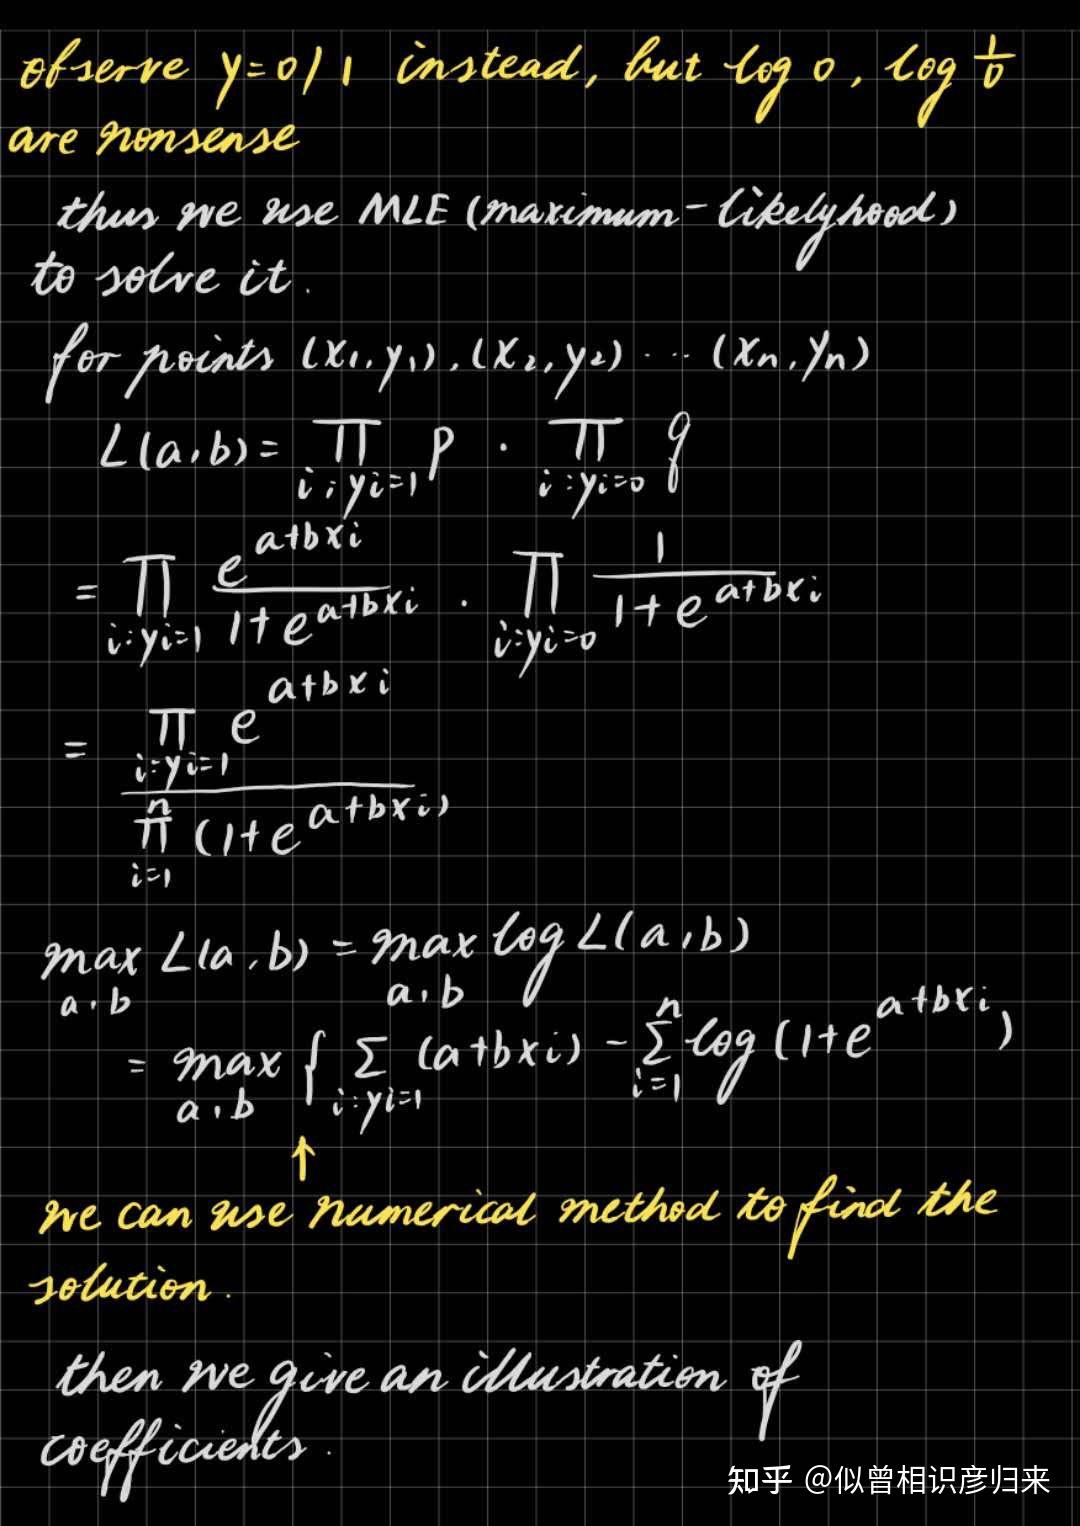 observe y=0/1 instead, but log 0, log 1/0
are nonsense
thus we use MLE (maximum-likelyhood)
to solve it.
for points (x₁,y₁),(x₂,y₂) ··· (xn,yn)
L(a,b)= ∏_{i:yi=1} p · ∏_{i:yi=0} q
= ∏_{i:yi=1} e^{a+bxi}/(1+e^{a+bxi}) · ∏_{i:yi=0} 1/(1+e^{a+bxi})
= ∏_{i:yi=1} e^{a+bxi} / ∏_{i=1}^{n} (1+e^{a+bxi})
max_{a,b} L(a,b) = max_{a,b} log L(a,b)
= max_{a,b} { ∑_{i:yi=1} (a+bxi) - ∑_{i=1}^{n} log (1+e^{a+bxi})
↑
we can use numerical method to find the
solution.
then we give an illustration of
coefficients.
知乎 @似曾相识彦归来